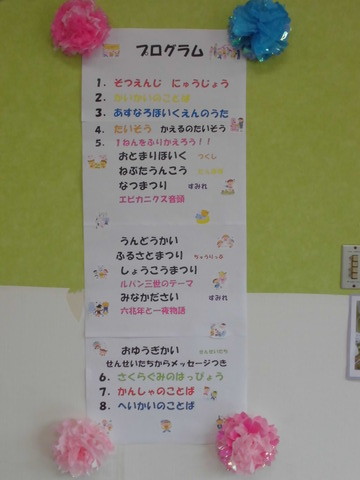 プログラム
1. そつえんじ にゅうじょう
2. かいかいのことば
3. あすなろほいくえんのうた
4. たいそう かえるのたいそう
5. 1ねんをふりかえろう！！
おとまりほいく つくし
ねぶたうんこう たんぽぽ
なつまつり すみれ
エビカニクス音頭
うんどうかい
ふるさとまつり ちゅうりっぷ
しょうこうまつり
ルパン三世のテーマ
みなかださい すみれ
六兆年と一夜物語
おゆうぎかい せんせいたち
せんせいたちからメッセージつき
6. さくらぐみのはっぴょう
7. かんしゃのことば
8. へいかいのことば